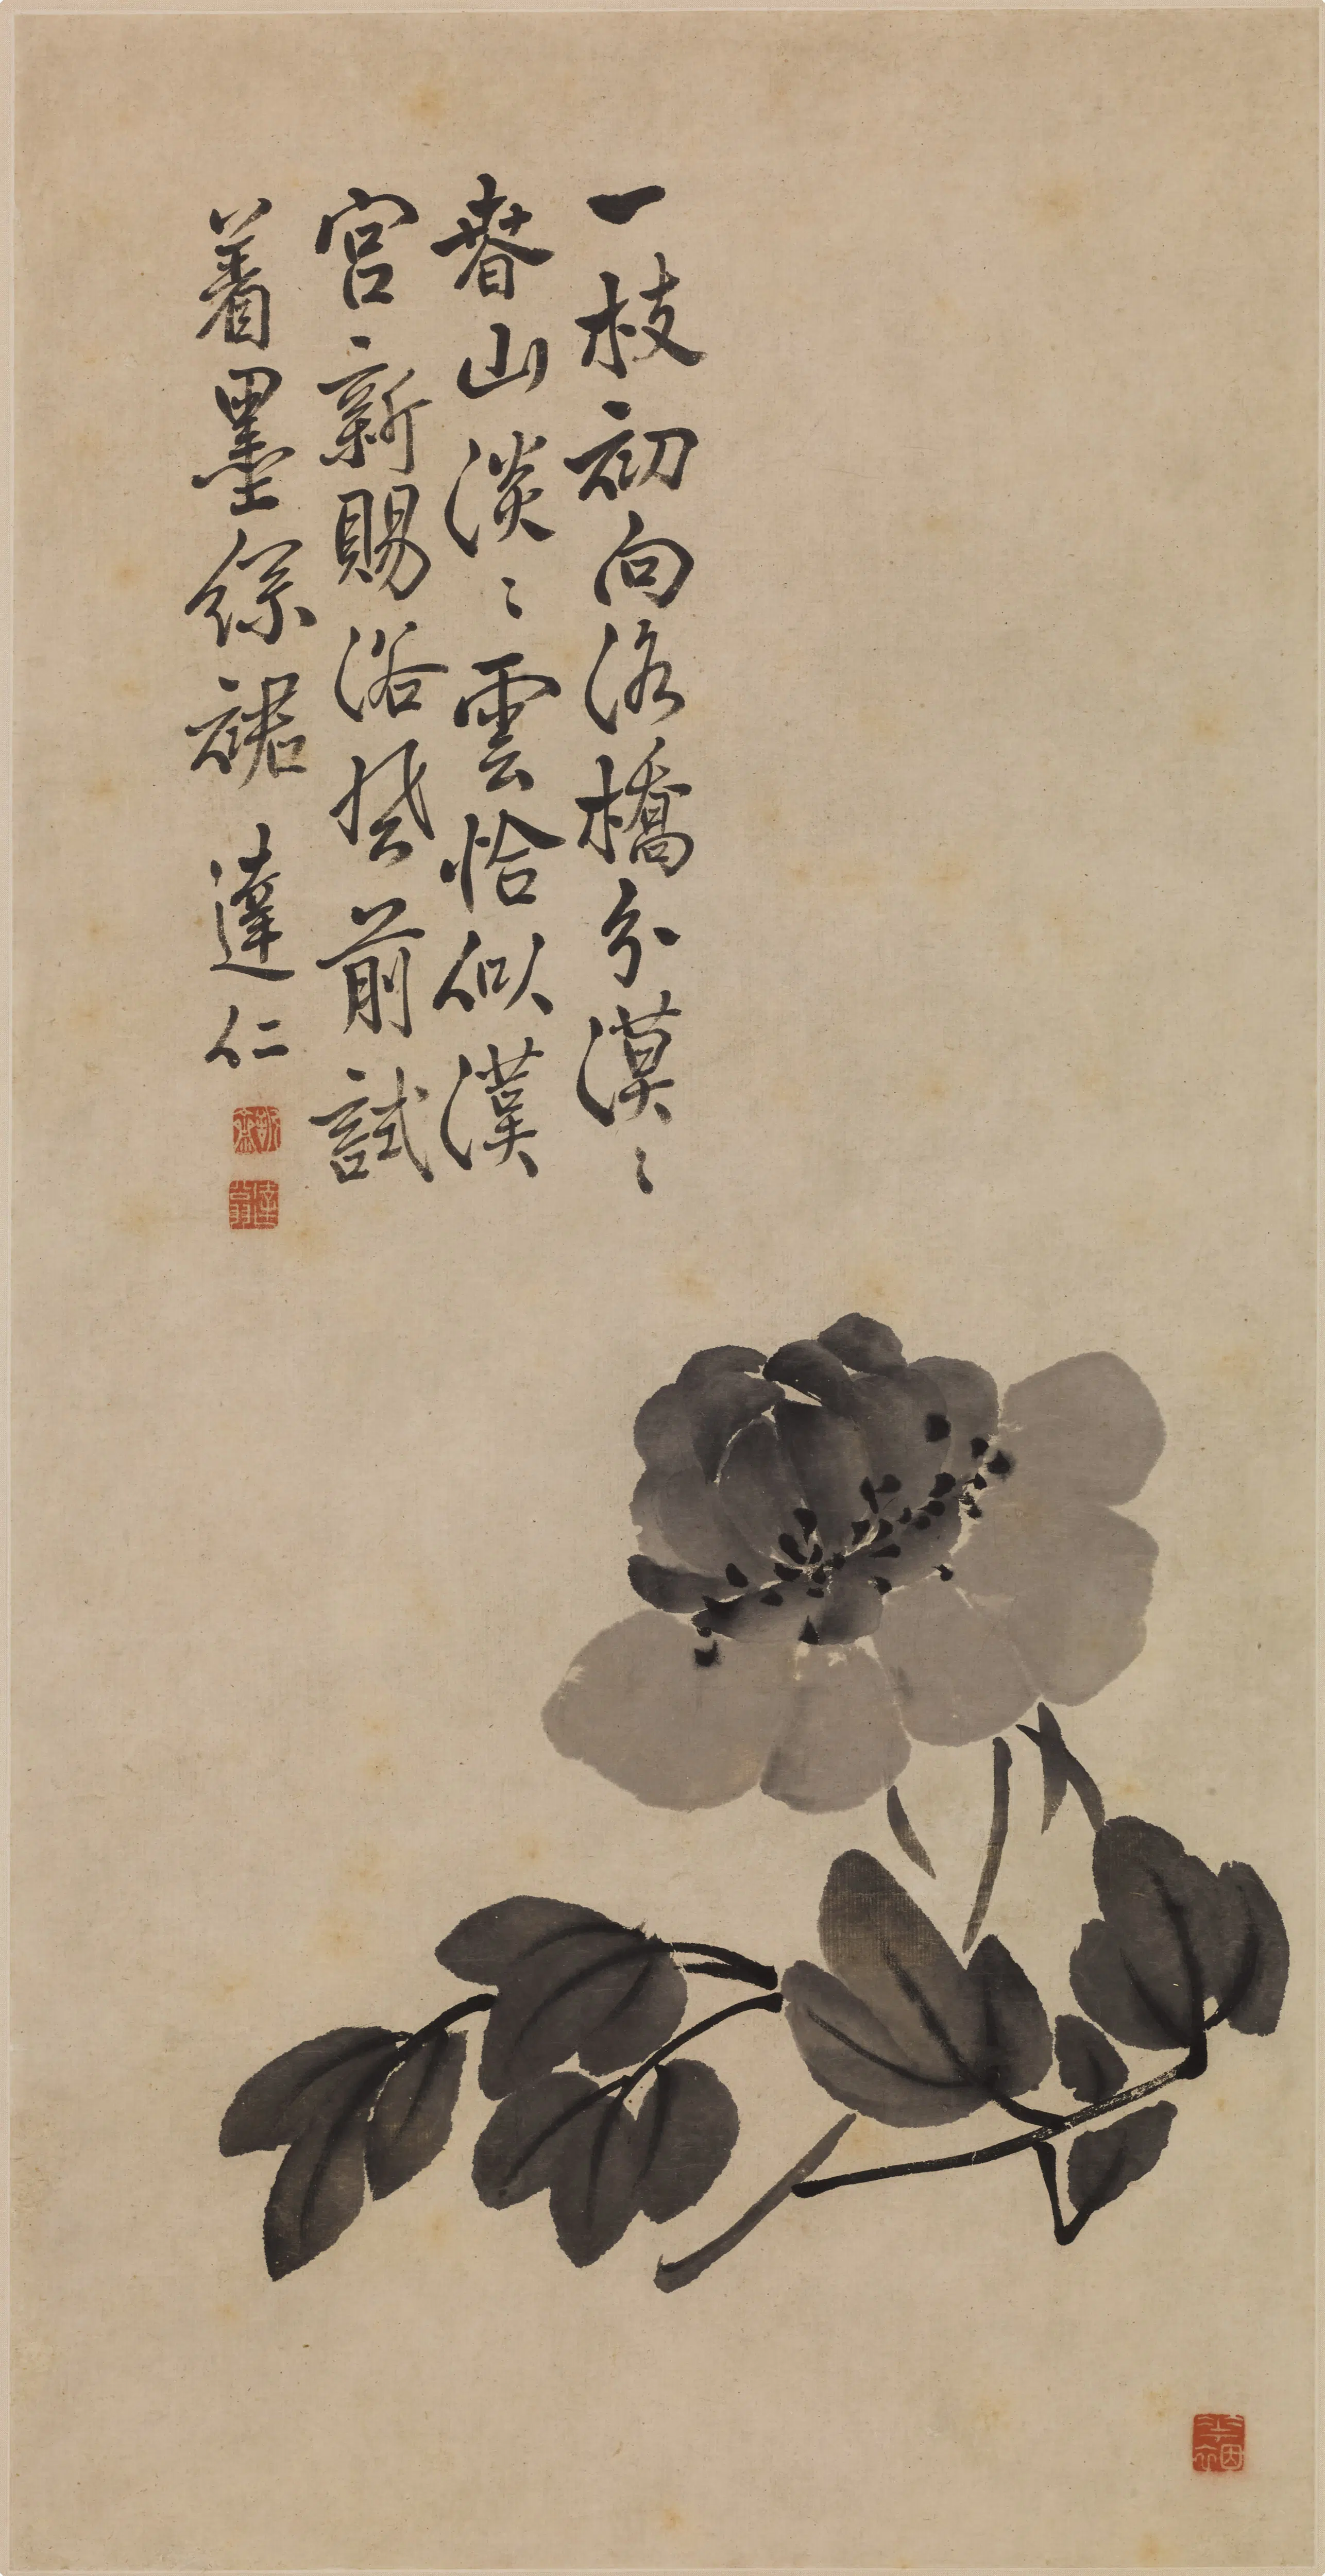 一枝初向洛橋分漠〻
春山淡〻雲恰似漢
宮新賜浴風前試
着墨綵裙 達仁